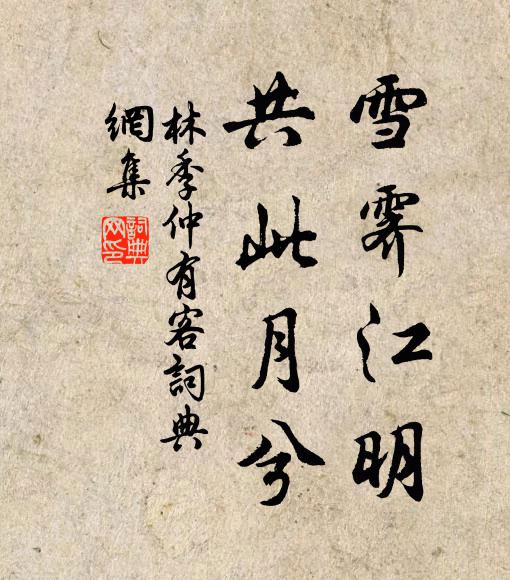 雪霽江明
共此月兮
林季仲有客詞典
網集
詞典
网印